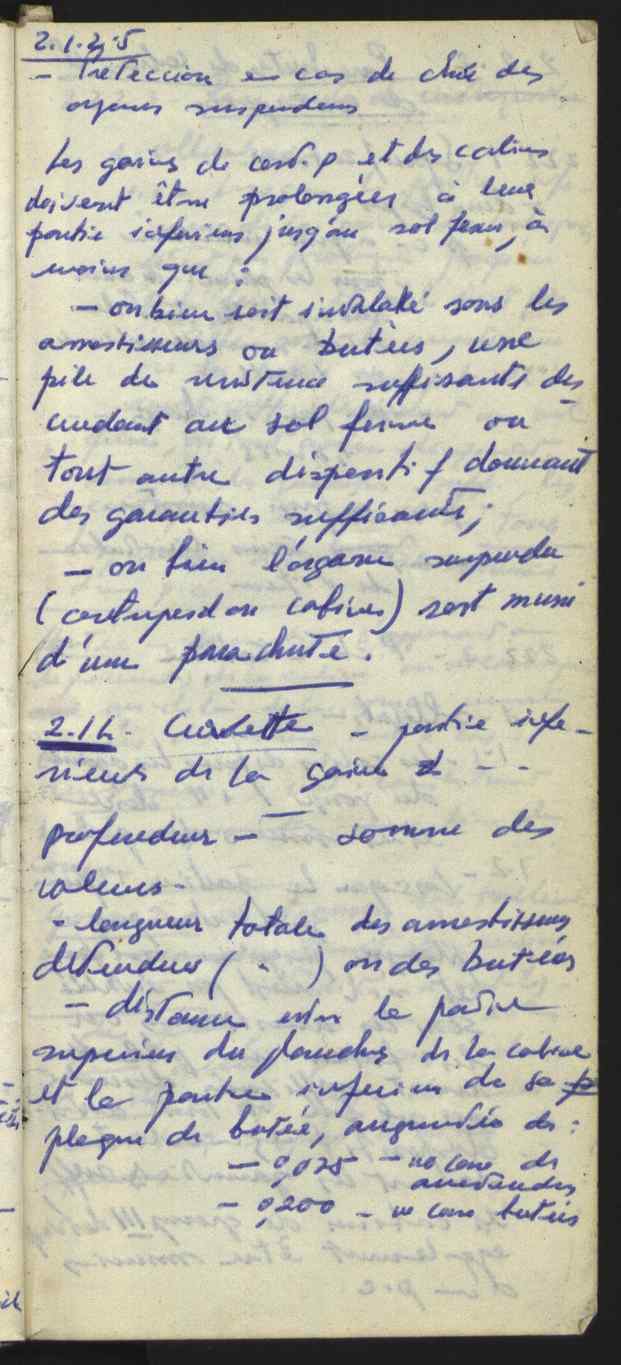 2.1.2.5
- Proteccion en cas de chûe des
organes suspendus
Les gaines de contr.p et des cabines
doivent être prolongées à leur
partie inferieure jusqu'au sol ferme, à
moins que :
- ou bien soit installé sous les
amortisseurs ou butées, une
pile de resistance suffisante des
cendant au sol ferme ou
tout autre dispositif donnant
des garanties suffisantes ;
- ou bien l'organe suspendu
(contrepesd ou cabines) soit muni
d'un parachute.
2.14. Cuvette - partie infe-
rieure de la gaine - -
profondeur - somme des
valeurs -
- longueur totale des amortisseurs
détendues ( " ) ou des butées
- distance entre la partie
superieure du plancher de la cabine
et la partie inferieure de sa
plaque de butée, augmentée de :
- 0,025 - au cas de
amortisseurs
- 0,200 - au cas butées